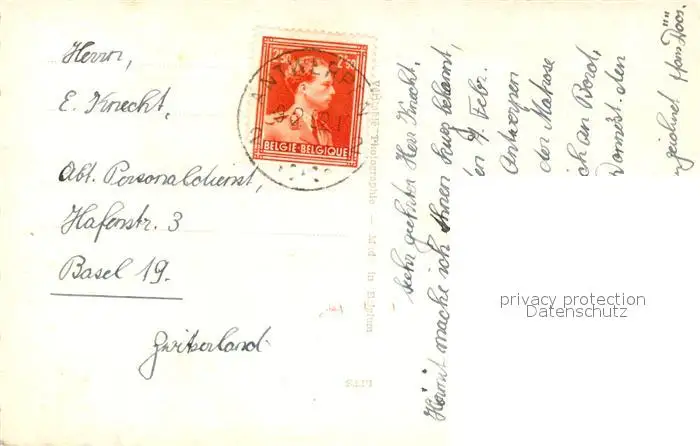 Herrn,
E. Knecht,
Abt. Personaldienst,
Hafenstr. 3
Basel 19.
Zwitserland
2F50
BELGIE-BELGIQUE
ANTWERPEN
Véritable Photographie - Made in Belgium
Sehr geehrter Herr Knecht.
Hiermit mache ich Ihnen kurz bekannt,
9. Febr.
Antwerpen
der Matrose
ich an Bord,
den
Hans
privacy protection
Datenschutz